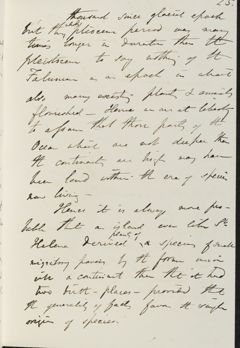 25.
thousand since glacial epoch
but the pliocene period was many
times longer in duration than the
pleistocene to say nothing of the
Falunian as an epoch in which
also many existing plants & animals
flourished — Hence we are at liberty
to assume that those parts of the
Ocean which are not deeper than
the continents are high may have
been land within the era of species
now living —
Hence it is always more pro-
bable that an island even like St.
Helena derived plants of a species of small
migrating powers by the former union
with a continent than that it had
two birth-places — provided that
the generality of facts favor the single
origin of species.